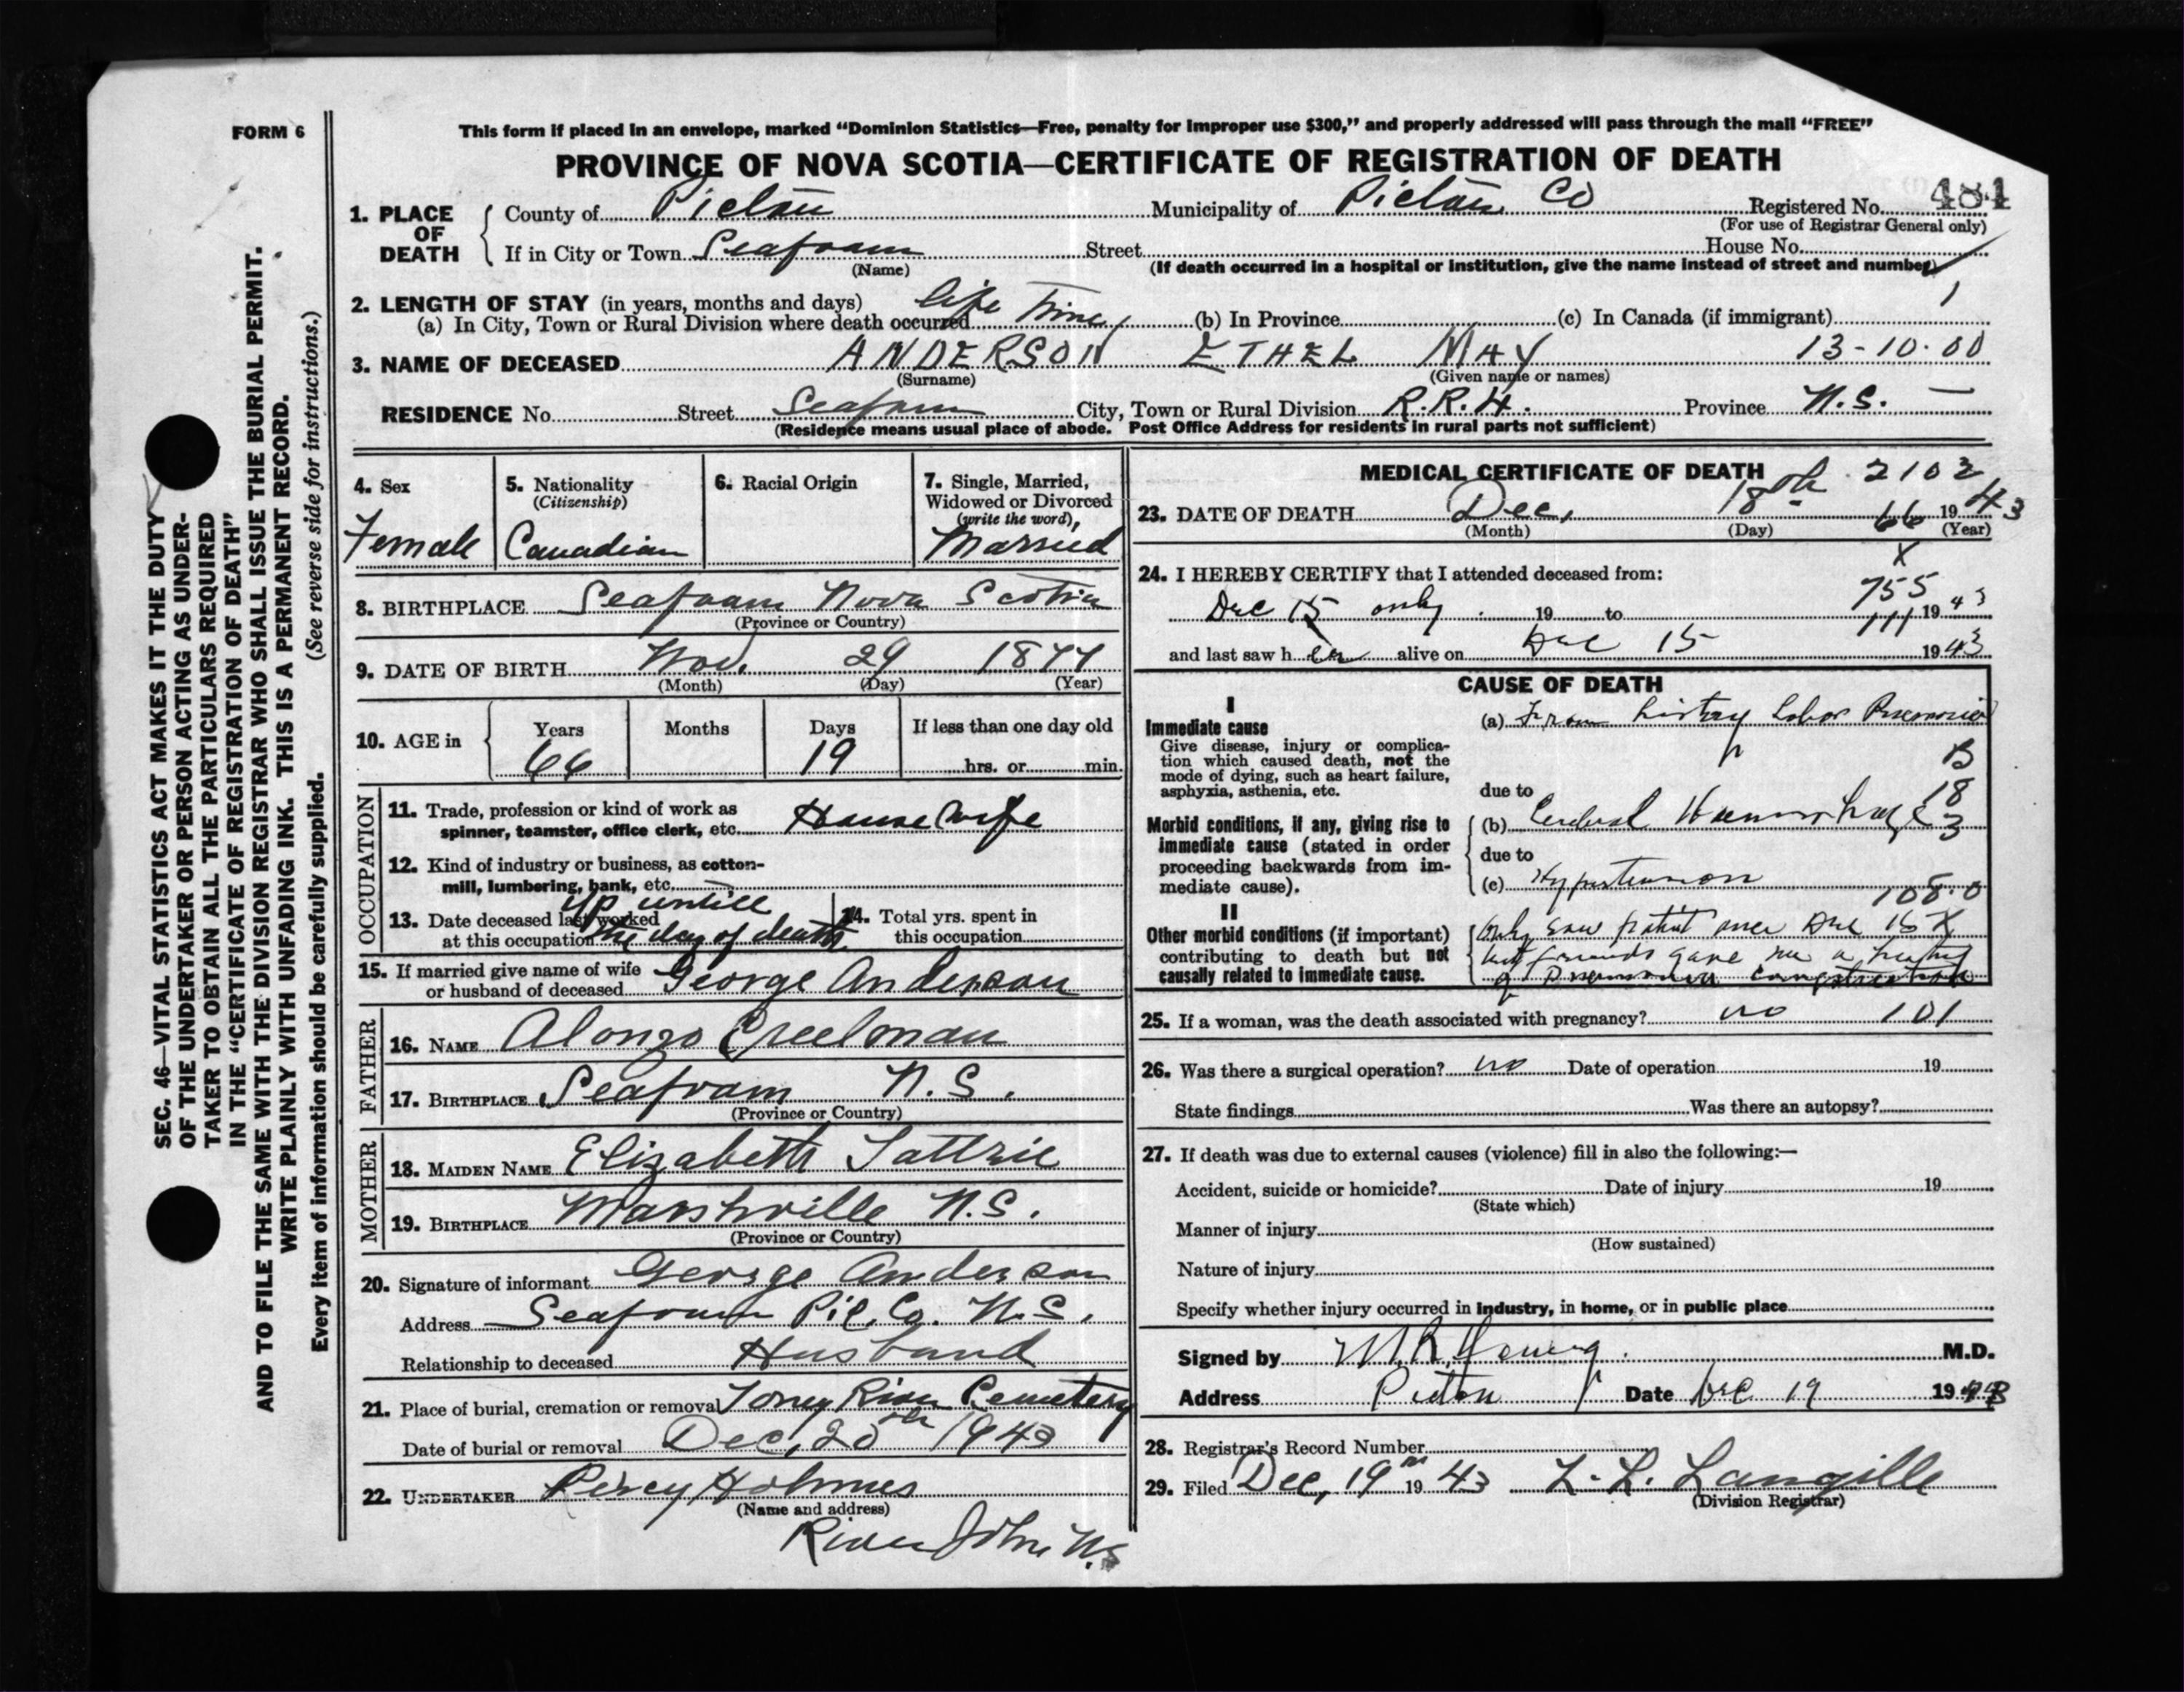 FORM 6
This form if placed in an envelope, marked "Dominion Statistics—Free, penalty for improper use $300," and properly addressed will pass through the mail "FREE"
PROVINCE OF NOVA SCOTIA—CERTIFICATE OF REGISTRATION OF DEATH
1. PLACE OF DEATH
County of Pictou Municipality of Pictou Co Registered No. 484
(For use of Registrar General only)
If in City or Town Seafoam Street House No.
(Name) (If death occurred in a hospital or institution, give the name instead of street and number)
2. LENGTH OF STAY (in years, months and days)
(a) In City, Town or Rural Division where death occurred life Time (b) In Province (c) In Canada (if immigrant)
3. NAME OF DECEASED ANDERSON ETHEL MAY 13-10-00
(Surname) (Given name or names)
RESIDENCE No. Street Seafoam City, Town or Rural Division R.R.4. Province N.S.
(Residence means usual place of abode. Post Office Address for residents in rural parts not sufficient)
4. Sex
Female
5. Nationality
(Citizenship)
Canadian
6. Racial Origin
7. Single, Married,
Widowed or Divorced
(write the word)
Married
8. BIRTHPLACE Seafoam Nova Scotia
(Province or Country)
9. DATE OF BIRTH Nov. 29 1877
(Month) (Day) (Year)
10. AGE in
Years Months Days If less than one day old
66 19 hrs. or min.
OCCUPATION
11. Trade, profession or kind of work as
spinner, teamster, office clerk, etc. House Wife
12. Kind of industry or business, as cotton-
mill, lumbering, bank, etc.
13. Date deceased last worked
at this occupation up untill
the day of death
14. Total yrs. spent in
this occupation
15. If married give name of wife
or husband of deceased George Anderson
FATHER
16. NAME Alonzo Creelman
17. BIRTHPLACE Seafoam N.S.
(Province or Country)
MOTHER
18. MAIDEN NAME Elizabeth Tattrie
19. BIRTHPLACE Marshville N.S.
(Province or Country)
20. Signature of informant George Anderson
Address Seafoam Pic. Co. N.S.
Relationship to deceased Husband
21. Place of burial, cremation or removal Toney River Cemetery
Date of burial or removal Dec, 20th 1943
22. UNDERTAKER Percy Holmes
(Name and address)
River John N.S
MEDICAL CERTIFICATE OF DEATH 2102
23. DATE OF DEATH Dec, 18th 66 1943
(Month) (Day) (Year)
X
24. I HEREBY CERTIFY that I attended deceased from:
755
Dec 15 only 19 to 111 1943
and last saw her alive on Dec 15 1943
CAUSE OF DEATH
I
Immediate cause
Give disease, injury or complica-
tion which caused death, not the
mode of dying, such as heart failure,
asphyxia, asthenia, etc.
(a) From history Lobar Pneumonia
B
18
3
due to
Morbid conditions, if any, giving rise to
immediate cause (stated in order
proceeding backwards from im-
mediate cause).
(b) Cerebral Haemorrhage
due to
(c) Hypertension
108.0
II
Other morbid conditions (if important)
contributing to death but not
causally related to immediate cause.
Only saw patient once Dec 15 X
but friends gave me a history
of Pneumonia complication
25. If a woman, was the death associated with pregnancy? no 101
26. Was there a surgical operation? no Date of operation 19
State findings Was there an autopsy?
27. If death was due to external causes (violence) fill in also the following:—
Accident, suicide or homicide? Date of injury 19
(State which)
Manner of injury
(How sustained)
Nature of injury
Specify whether injury occurred in industry, in home, or in public place
Signed by M.R. Young M.D.
Address Pictou Date Dec 19 1943
28. Registrar's Record Number
29. Filed Dec, 19th 1943 L. L. Langille
(Division Registrar)
SEC. 46—VITAL STATISTICS ACT MAKES IT THE DUTY
OF THE UNDERTAKER OR PERSON ACTING AS UNDER-
TAKER TO OBTAIN ALL THE PARTICULARS REQUIRED
IN THE "CERTIFICATE OF REGISTRATION OF DEATH"
AND TO FILE THE SAME WITH THE DIVISION REGISTRAR WHO SHALL ISSUE THE BURIAL PERMIT.
WRITE PLAINLY WITH UNFADING INK. THIS IS A PERMANENT RECORD.
Every item of information should be carefully supplied. (See reverse side for instructions.)